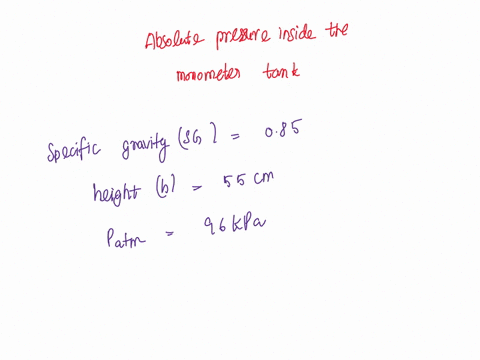 Absolute pressure inside the
monometer tank
Specific gravity (SG) = 0.85
height (h) = 55 cm
Patm = 96 kPa